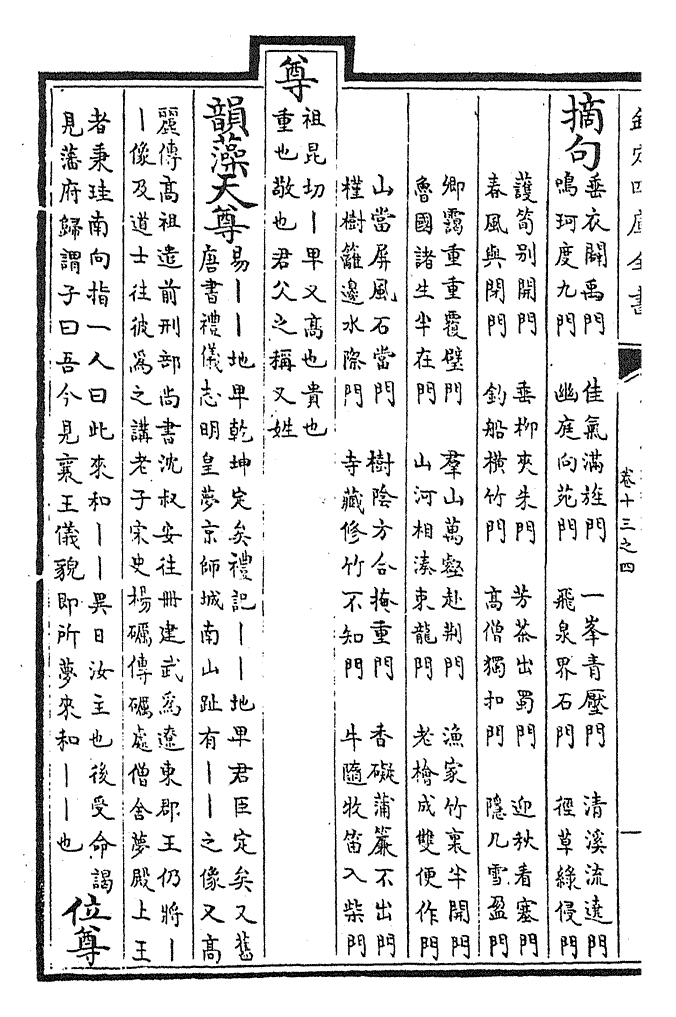 欽定四庫全書 卷十三之四 一
摘句
垂衣闢禹門 佳氣滿旌門 一峯青壓門 清溪流遶門
鳴珂度九門 幽庭向苑門 飛泉界石門 徑草綠侵門
護筍别開門 垂柳夾朱門 芳茶出蜀門 迎秋看塞門
春風與閉門 釣船横竹門 髙僧獨扣門 隱几雪盈門
卿靄重重覆璧門 羣山萬壑赴荆門 漁家竹裏半開門
魯國諸生半在門 山河相湊東龍門 老檜成雙便作門
山當屏風石當門 樹陰方合掩重門 香礙蒲簾不出門
槿樹籬邊水際門 寺藏修竹不知門 牛隨牧笛入柴門
尊
祖昆切丨卑又髙也貴也
重也敬也君父之稱又姓
韻藻天尊
易丨丨地卑乾坤定矣禮記丨丨地卑君臣定矣又舊
唐書禮儀志明皇夢京師城南山趾有丨丨之像又髙
麗傳髙祖遣前刑部尚書沈叔安往冊建武爲遼東郡王仍將丨
丨像及道士往彼爲之講老子宋史楊礪傳礪處僧舍夢殿上王
者秉珪南向指一人曰此來和丨丨異日汝主也後受命謁
見藩府歸謂子曰吾今見襄王儀貌即所夢來和丨丨也
位尊